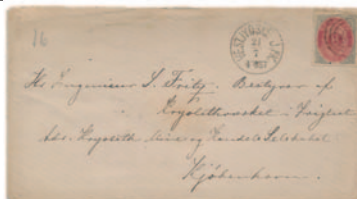 16
Hr Ingenieur S. Fritz. Bestyrer af
Kryolithbruddet i Ivigtut
Adr. Kryolith Mine og Handels Selskabet
Kjöbenhavn.